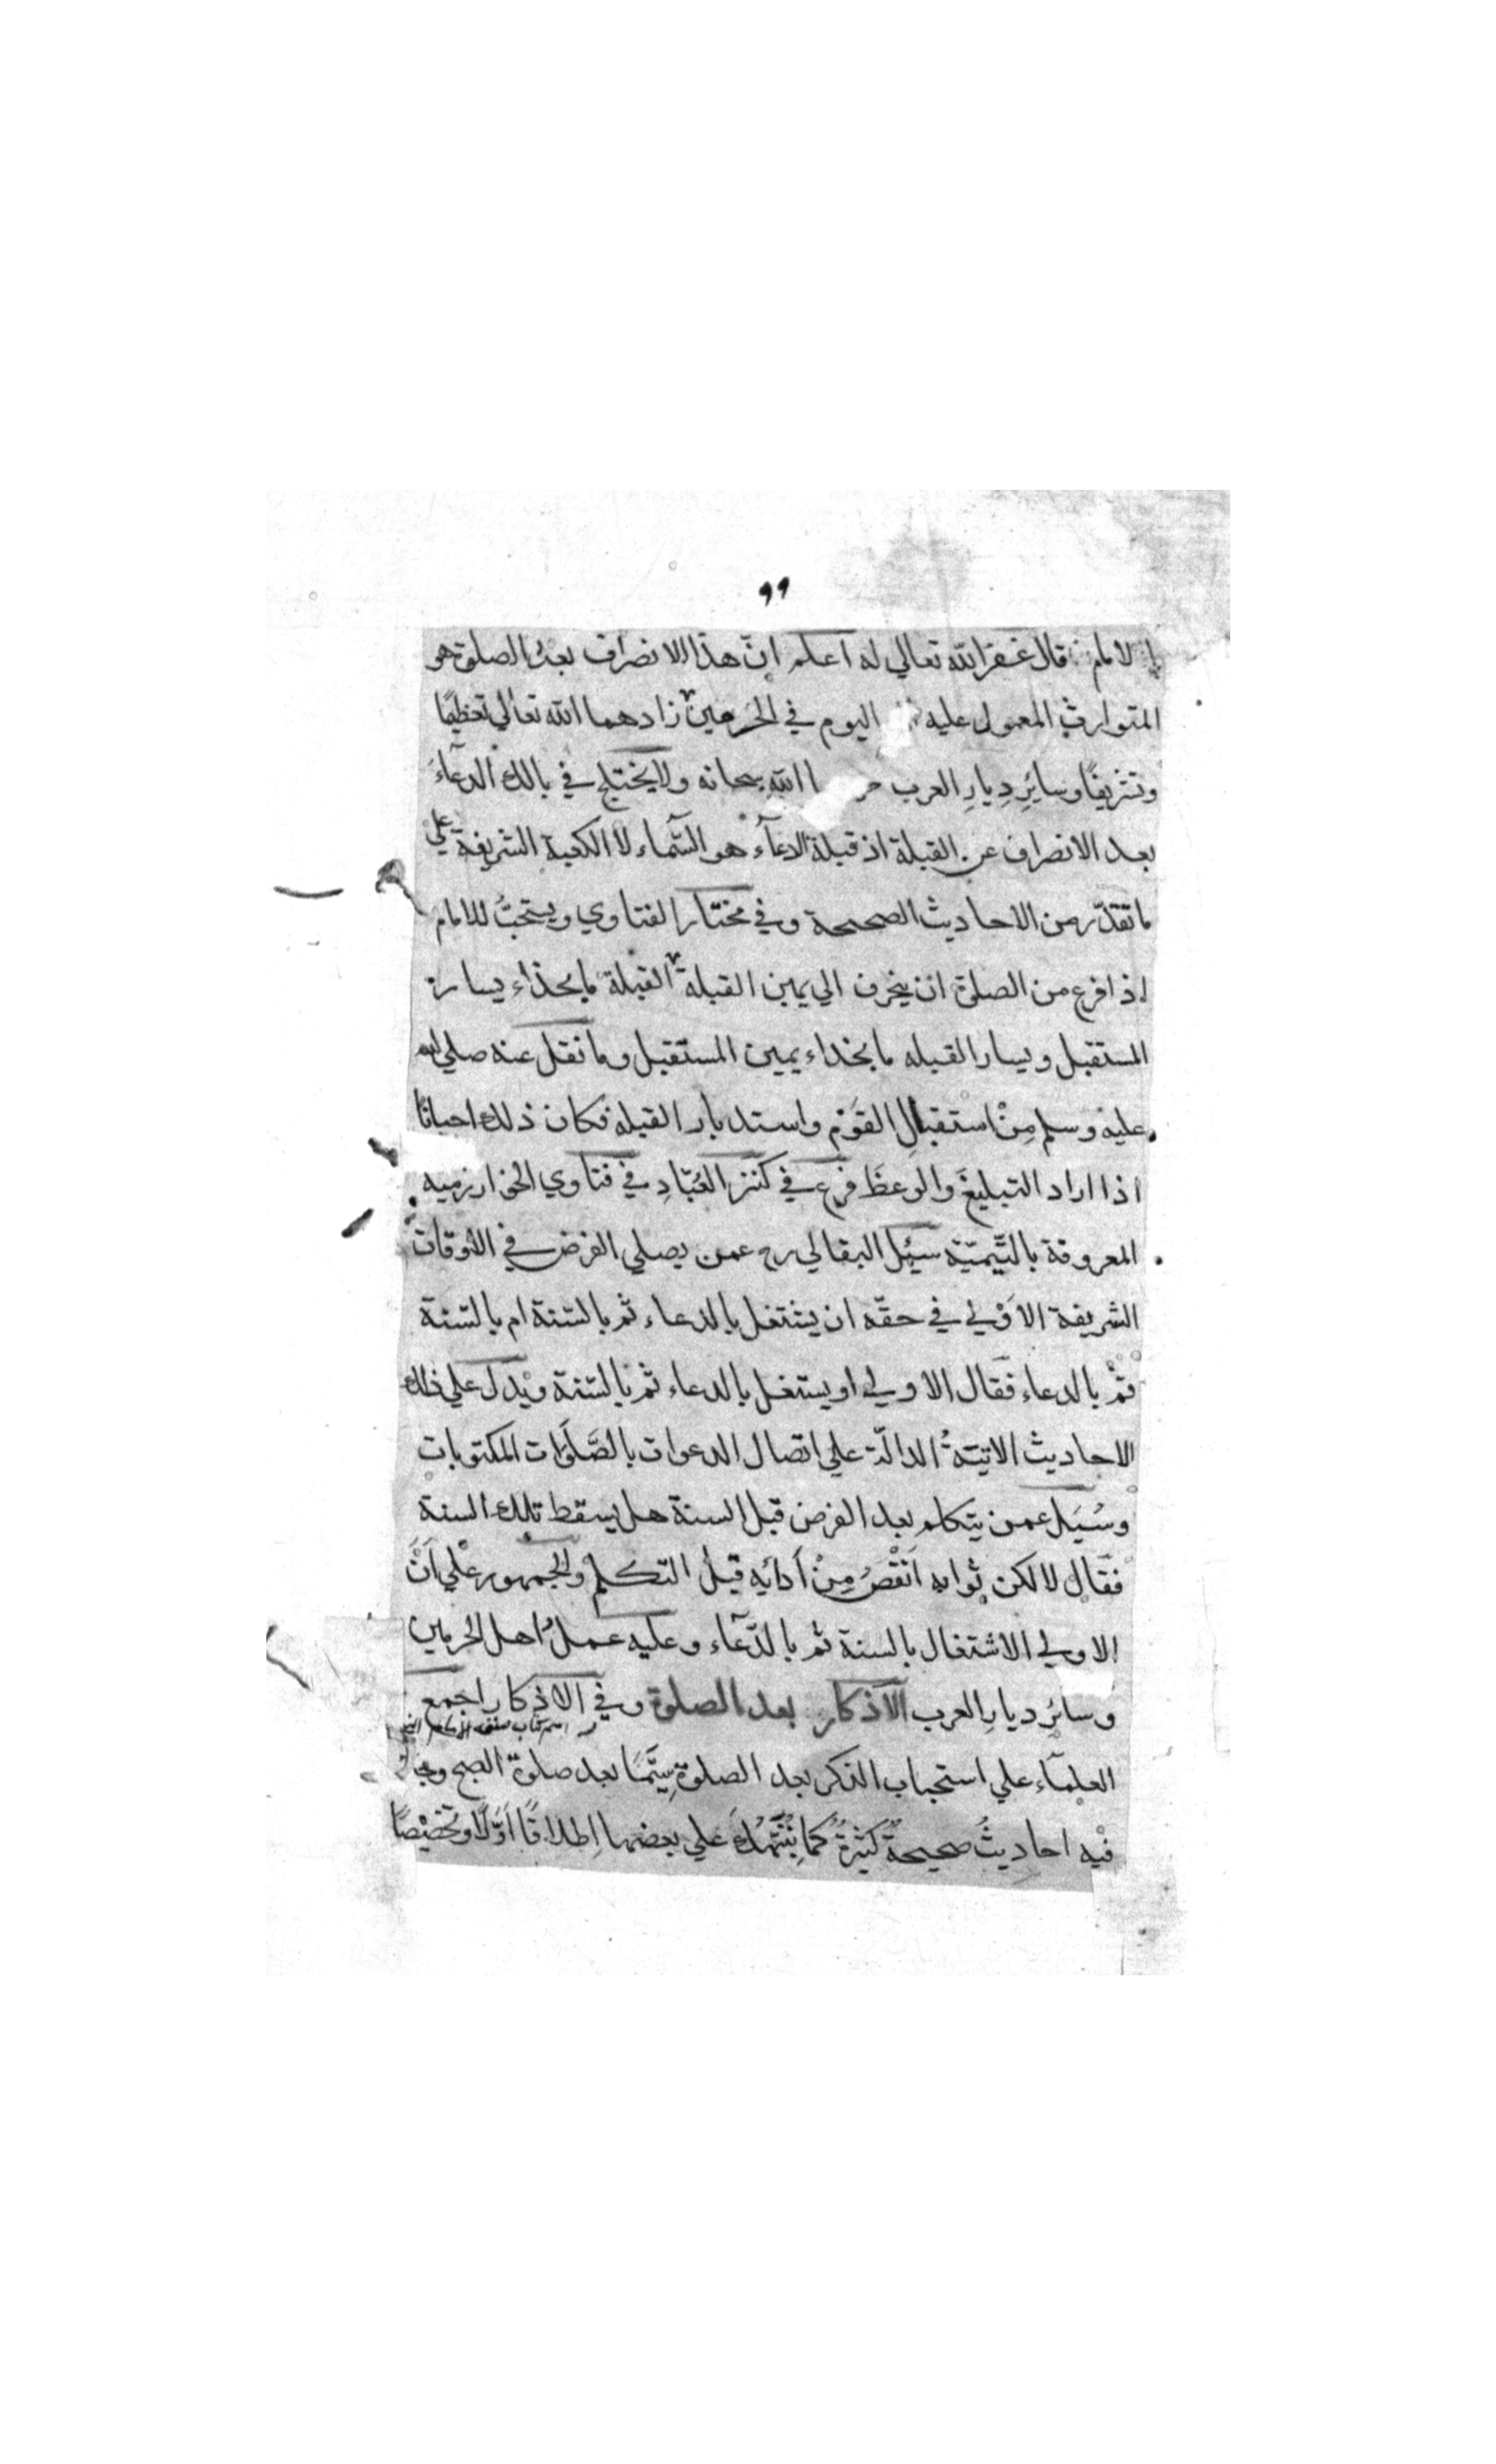 ٩٩
الامام قال غفر الله تعالي له اعلم ان هذا الانصراف بعد الصلوة هو
المتوارث المعمول عليه اليوم في الحرمين زادهما الله تعالي تعظيمًا
وتشريفًا وسائِرِ دِيارِ العرب الله سبحانه ولا يختلج في بالك الدعآءُ
بعد الانصراف عن القبلة اذ قبلة الدعآء هو السّماء لا الكعبة الشريفة علي
ما تقدّم من الاحاديث الصحيحة وفي مختار الفتاوي ويستحبُّ للامام
اذا فرغ من الصلوة ان ينحرف الي يمين القبلة القبلة ما بحذاء يسار
المستقبل ويسار القبله ما بحذاء يمين المستقبل وما نقل عنه صلي الله
عليه وسلم مِنْ استقبالِ القوْمِ واستدبار القبلة فكان ذلك احيانًا
اذا اراد التبليغَ والوعظَ فرع في كنز العُبّادِ في فتاوي الخوارزميه
المعروفة باليَتيمّة سُئِل البقالي رح عمن يصلي الفرض في الاوقات
الشريفة الاوْلي في حقّه ان يشتغل بالدعاء ثم بالسّنة ام بالسّنة
ثمْ بالدعاء فقال الاولي او يستغل بالدعاء ثم بالسّنة ويدل علي ذلك
الاحاديث الاتيَةُ الدالّة علي اتصال الدعوات بالصَّلَوٰات المكتوبات
وسُئِل عمن يتكلم بعد الفرض قبل السنة هل يسقط تلك السنة
فقال لا لكن ثوابه اَنْقَصُ مِنْ اَدائِه قبل التكلم والجمهور علي اَنَّ
الاولي الاشتغال بالسنة ثم بالدّعآء وعليه عملُ اهل الحرمين
وسائر ديارِ العرب الاذكار بعد الصلوة وفي الاذكار اجمع
اسم كتاب صنفه الامام
العلمآء علي استحباب الذكر بعد الصلوة سيَّمَا بعد صلوة الصبح
فيْه احاديثُ صحيحةٌ كثيرةٌ كما نُنَبِّهُكَ علي بعضها اِطلاقًا اَوّلًا وتخصيْصًا